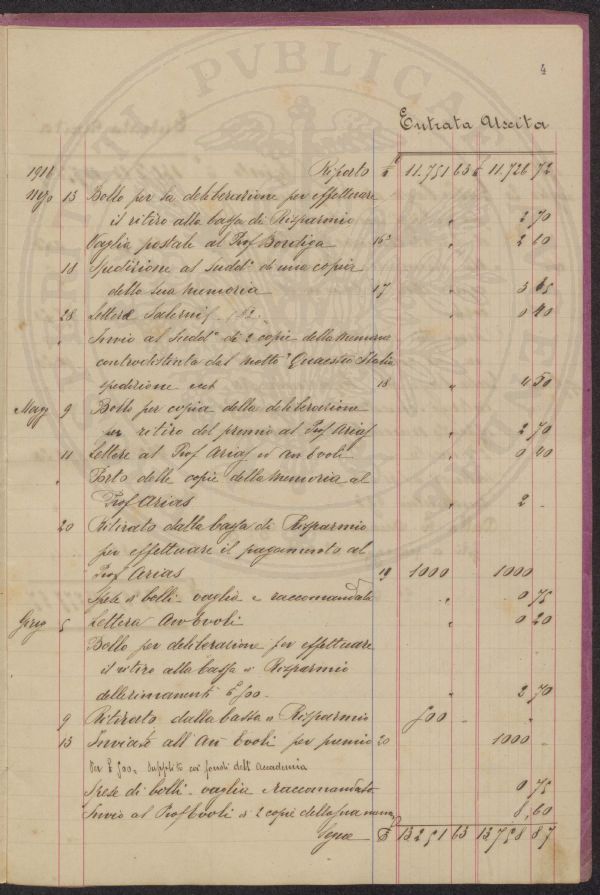 4
Entrata Uscita
1918 Riporto £ 11.751 63 £ 11.726 72
13 Bollo per la deliberazione per effettuare
il ritiro alla Cassa di Risparmio " 2 70
Vaglia postale al Prof Bordiga 16 " 2 10
18 Spedizione al Sudd° di una copia
della sua memoria 17 " 3 65
28 Lettere " 0 40
" Invio al Sudd° di 2 copie della memoria
contradistinta dal motto "Quaestio Italia
spedizione 18 " 4 50
Magg 9 Bollo per copia della deliberazione
ritiro del premio al Prof Arias " 2 70
11 Lettere al Prof Arias ed Avv Evoli " 0 40
" Porto delle copie della memoria al
Prof Arias " 2 -
20 Ritirato dalla Cassa di Risparmio
per effettuare il pagamento al
Prof Arias 19 1000 1000
Spese di bolli vaglia e raccomandata " 0 75
Giug 5 Lettera Avv Evoli " 0 20
Bollo per deliberazione per effettuare
il ritiro alla Cassa di Risparmio
delle rimanenti £ 500 - " 2 70
9 Ritirato dalla Cassa di Risparmio 500 - "
13 Inviate all'Avv Evoli per premio 20 1000 -
Per £ 500 supplito coi fondi dell'Accademia
Spese di bolli - vaglia e raccomandata 0 75
Invio al Prof Evoli di 2 copie della sua mem 8,60
Segue £ 13251 63 13758 87